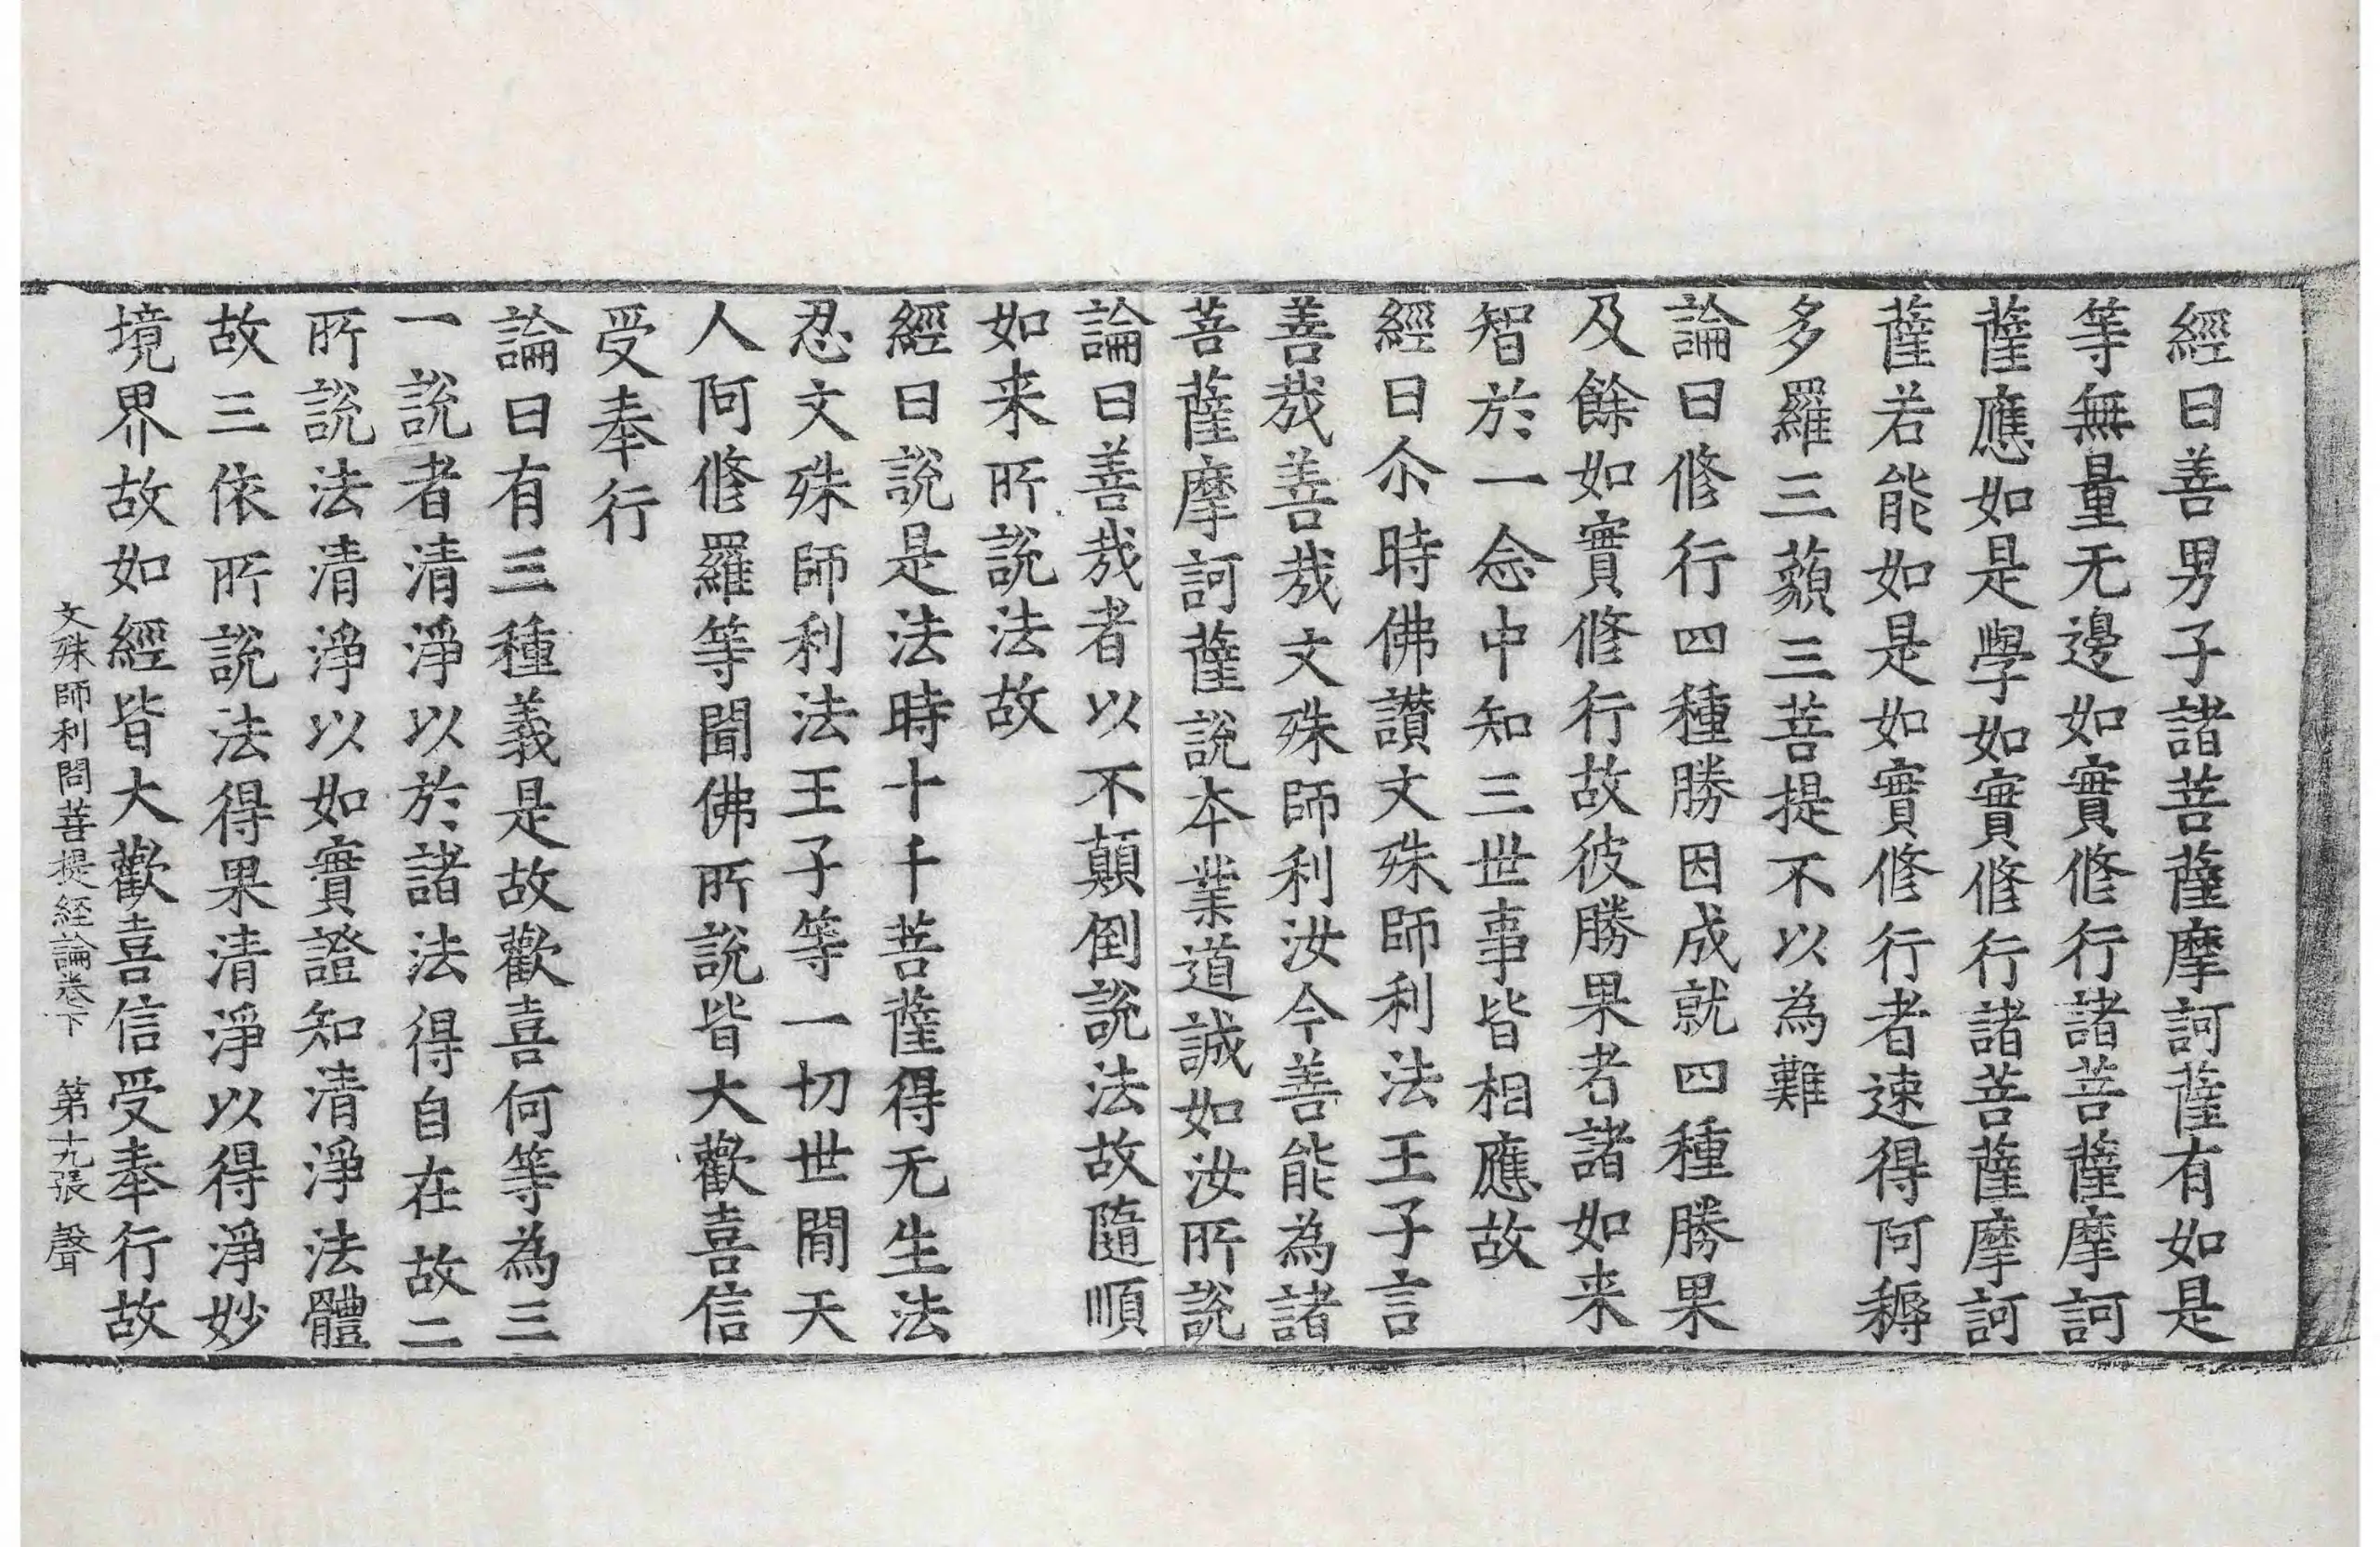 經曰善男子諸菩薩摩訶薩有如是
等無量无邊如實修行諸菩薩摩訶
薩應如是學如實修行諸菩薩摩訶
薩若能如是如實修行者速得阿耨
多羅三藐三菩提不以為難
論曰修行四種勝因成就四種勝果
及餘如實修行故彼勝果者諸如来
智於一念中知三世事皆相應故
經曰尒時佛讃文殊師利法王子言
善哉善哉文殊師利汝今善能為諸
菩薩摩訶薩說本業道誠如汝所說
論曰善哉者以不顛倒說法故隨順
如来所說法故
經曰說是法時十千菩薩得无生法
忍文殊師利法王子等一切世閒天
人阿修羅等聞佛所說皆大歡喜信
受奉行
論曰有三種義是故歡喜何等為三
一說者清淨以於諸法得自在故二
所說法清淨以如實證知清淨法體
故三依所說法得果清淨以得淨妙
境界故如經皆大歡喜信受奉行故
文殊師利問菩提経論卷下 第十九張 聲